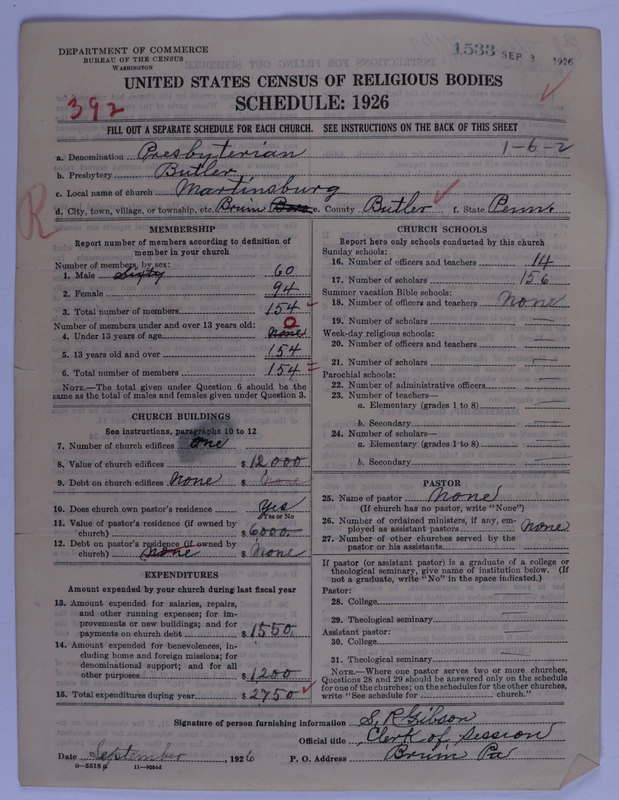 DEPARTMENT OF COMMERCE
BUREAU OF THE CENSUS
WASHINGTON
1533 SEP 3 1926
UNITED STATES CENSUS OF RELIGIOUS BODIES
SCHEDULE: 1926
392
FILL OUT A SEPARATE SCHEDULE FOR EACH CHURCH. SEE INSTRUCTIONS ON THE BACK OF THIS SHEET
1-6-2
a. Denomination Presbyterian
b. Presbytery Butler
c. Local name of church Martinsburg
d. City, town, village, or township, etc. Bruin e. County Butler f. State Penn.
R
MEMBERSHIP
Report number of members according to definition of
member in your church
Number of members, by sex:
1. Male Sixty 60
2. Female 94
3. Total number of members 154
Number of members under and over 13 years old:
4. Under 13 years of age None 0
5. 13 years old and over 154
6. Total number of members 154
NOTE.—The total given under Question 6 should be the
same as the total of males and females given under Question 3.
CHURCH BUILDINGS
See instructions, paragraphs 10 to 12
7. Number of church edifices one
8. Value of church edifices $ 12000
9. Debt on church edifices None $ None
10. Does church own pastor's residence Yes
Yes or No
11. Value of pastor's residence (if owned by
church) $ 6000.
12. Debt on pastor's residence (if owned by
church) None $ None
EXPENDITURES
Amount expended by your church during last fiscal year
13. Amount expended for salaries, repairs,
and other running expenses; for im-
provements or new buildings; and for
payments on church debt $ 1550.
14. Amount expended for benevolences, in-
cluding home and foreign missions; for
denominational support; and for all
other purposes $ 1200
15. Total expenditures during year $ 2750
CHURCH SCHOOLS
Report here only schools conducted by this church
Sunday schools:
16. Number of officers and teachers 14
17. Number of scholars 156
Summer vacation Bible schools:
18. Number of officers and teachers None
19. Number of scholars
Week-day religious schools:
20. Number of officers and teachers
21. Number of scholars
Parochial schools:
22. Number of administrative officers
23. Number of teachers—
a. Elementary (grades 1 to 8)
b. Secondary
24. Number of scholars—
a. Elementary (grades 1 to 8)
b. Secondary
PASTOR
25. Name of pastor None
(If church has no pastor, write "None")
26. Number of ordained ministers, if any, em-
ployed as assistant pastors None
27. Number of other churches served by the
pastor or his assistants
If pastor (or assistant pastor) is a graduate of a college or
theological seminary, give name of institution below. (If
not a graduate, write "No" in the space indicated.)
Pastor:
28. College
29. Theological seminary
Assistant pastor:
30. College
31. Theological seminary
NOTE.—Where one pastor serves two or more churches,
Questions 28 and 29 should be answered only on the schedule
for one of the churches; on the schedules for the other churches,
write "See schedule for church."
Signature of person furnishing information S. R Gibson
Official title Clerk of Session
Date September, 1926 P. O. Address Bruin Pa